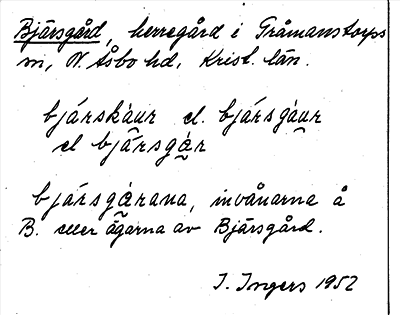 Bjärsgård, herregård i Gråmanstorps
sn, N. Åsbo hd, Krist. län.
bjárskàur el. bjársgàur
el bjā́rsgàr
bjársgàrana, invånarna å
B. eller ägarna av Bjärsgård.
I. Ingers 1952